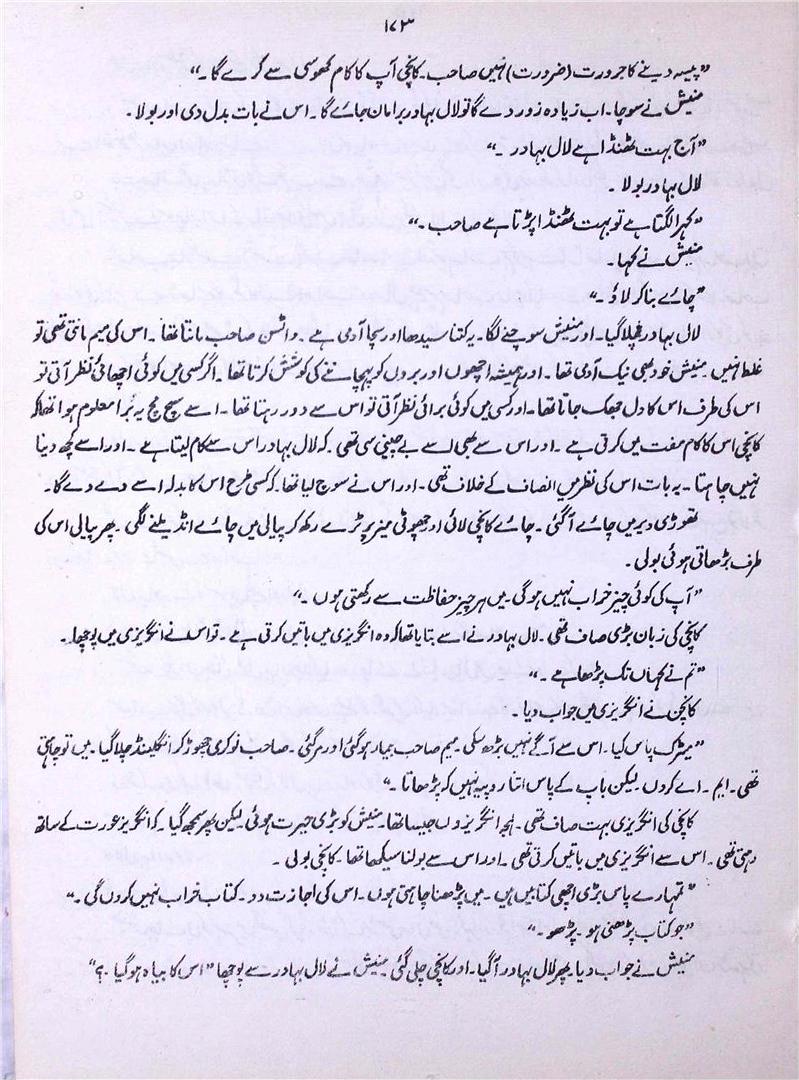 ۱۷۳
”پیسہ دینے کا جرورت (ضرورت) نہیں صاحب۔ کانچی آپ کا کام کھوسی سے کرے گا۔“
منیش نے سوچا۔ اب زیادہ زور دے گا تو لال بہادر برا مان جائے گا۔ اس نے بات بدل دی اور بولا۔
”آج بہت ٹھنڈا ہے لال بہادر۔“
لال بہادر بولا۔
”کہرا لگتا ہے تو بہت ٹھنڈا پڑتا ہے صاحب۔“
منیش نے کہا۔
”چائے بنا کر لاؤ۔“
لال بہادر چلا گیا۔ اور منیش سوچنے لگا۔ یہ کتنا سیدھا اور سچا آدمی ہے۔ واٹسن صاحب مانتا تھا۔ اس کی میم مانتی تھی تو
غلط نہیں۔ منیش خود بھی نیک آدمی تھا۔ اور ہمیشہ اچھوں اور بروں کو پہچاننے کی کوشش کرتا تھا۔ اگر کسی میں کوئی اچھائی نظر آتی تو
اس کی طرف اس کا دل جھک جاتا تھا۔ اور کسی میں کوئی برائی نظر آتی تو اس سے دور رہتا تھا۔ اسے سچ مچ یہ برا معلوم ہوا تھا کہ
کانچی اس کا کام مفت میں کرتی ہے۔ اور اس سے بھی اسے بے چینی سی تھی۔ کہ لال بہادر اس سے کام لیتا ہے۔ اور اسے کچھ دینا
نہیں چاہتا۔ یہ بات اس کی نظر میں انصاف کے خلاف تھی۔ اور اس نے سوچ لیا تھا۔ کہ کسی طرح اس کا بدلہ اسے دے دے گا۔
تھوڑی دیر میں چائے آ گئی۔ چائے کانچی لائی اور چھوٹی میز پر ٹرے رکھ کر پیالی میں چائے انڈیلنے لگی۔ پھر پیالی اس کی
طرف بڑھاتی ہوئی بولی۔
”آپ کی کوئی چیز خراب نہیں ہوگی۔ میں ہر چیز حفاظت سے رکھتی ہوں۔“
کانچی کی زبان بڑی صاف تھی۔ لال بہادر نے اسے بتایا تھا کہ وہ انگریزی میں باتیں کرتی ہے۔ تو اس نے انگریزی میں پوچھا۔
”تم نے کہاں تک پڑھا ہے۔“
کانچن نے انگریزی میں جواب دیا۔
”میٹرک پاس کیا۔ اس سے آگے نہیں پڑھ سکی۔ میم صاحب بیمار ہو گئی اور مر گئی۔ صاحب نوکری چھوڑ کر انگلینڈ چلا گیا۔ میں تو چاہتی
تھی۔ ایم۔ اے کروں۔ لیکن باپ کے پاس اتنا روپیہ نہیں کہ پڑھاتا۔“
کانچی کی انگریزی بہت صاف تھی۔ لہجہ انگریزوں جیسا تھا۔ منیش کو بڑی حیرت ہوئی لیکن پھر سمجھ گیا۔ کہ انگریز عورت کے ساتھ
رہتی تھی۔ اس سے انگریزی میں باتیں کرتی تھی۔ اور اس سے بولنا سیکھا تھا۔ کانچی بولی۔
”تمہارے پاس بڑی اچھی کتابیں ہیں۔ میں پڑھنا چاہتی ہوں۔ اس کی اجازت دو۔ کتاب خراب نہیں کروں گی۔“
”جو کتاب پڑھنی ہو۔ پڑھو۔“
منیش نے جواب دیا۔ پھر لال بہادر آ گیا۔ اور کانچی چلی گئی۔ منیش نے لال بہادر سے پوچھا ”اس کا بیاہ ہو گیا۔؟“